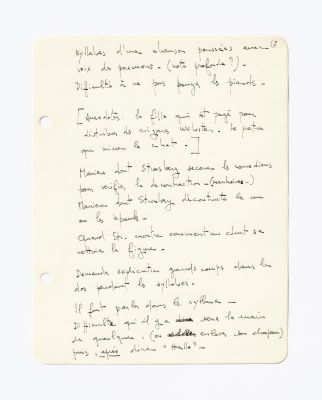 2
syllabes d'une chanson poussées avec
voix de poumons. (note profonde?).
Difficulté à ne pas bouger les pieds.
[Anecdotes: la fille qui est payé pour
distribuer des cigares Webster. Le peintre
qui suce le chat. ]
Manière dont Strasberg secoue les comédiens
pour vérifier la décontraction
Manière dont Strasberg décontracte le cou
ou les épaules.
Quand montre comment un chat se
nettoie la figure.
Demande explication grands coups dans le
dos pendant les syllabes.
Il faut parler dans le rythme -
Difficulté qu'il y a sous la main
de quelqu'un, (ou enlever son chapeau)
puis, après dire "Hello".